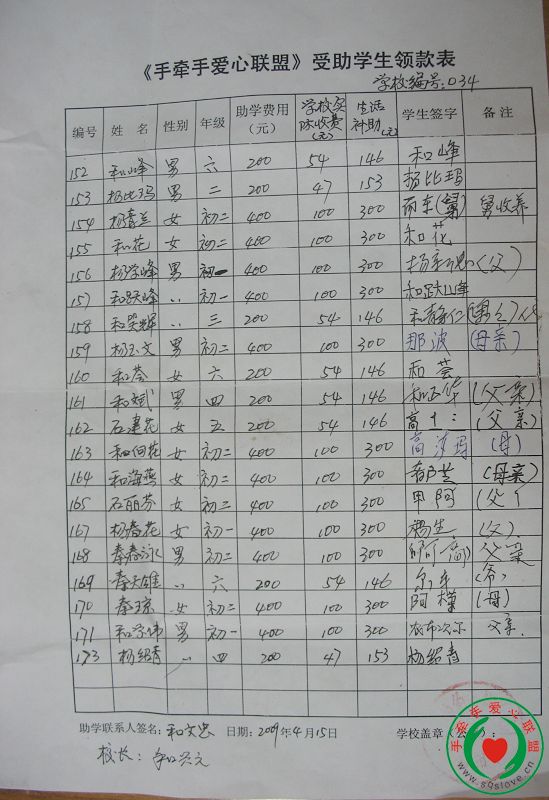 《手牵手爱心联盟》受助学生领款表
学校编号:034
编号 姓 名 性别 年级 助学费用(元) 学校实际收费(元) 生活补助(元) 学生签字 备 注
152 和山峰 男 六 200 54 146 和峰
153 杨比玛 男 二 200 47 153 杨比玛
154 杨春兰 女 初二 400 100 300 舅收养
155 和花 女 初二 400 100 300 和花
156 杨学峰 男 初一 400 100 300 (父)
157 和跃峰 〃 初一 400 100 300 和跃山峰
158 和英辉 〃 三 200 54 146 和静仁
159 杨玉文 男 初二 400 100 300 那波 (母亲)
160 和荟 女 六 200 54 146 和荟
161 和斌 男 四 200 54 146 和正华 (父亲)
162 石建花 女 五 200 54 146 高十二 (父亲)
163 和向花 女 初二 400 100 300 (母)
164 和海燕 女 初二 400 100 300 (母亲)
165 石丽芬 女 初二 400 100 300 甲阿 (父)
167 杨春花 女 初一 400 100 300 (父)
168 春泳 男 初二 400 100 300 父亲
169 天雄 〃 六 200 54 146
170 琼 女 初二 400 100 300 (母)
171 和学伟 男 初一 400 100 300 父亲
173 杨绍青 〃 四 200 47 153 杨绍青
助学联系人签名:和文忠 日期:2009年4月15日 学校盖章(公):
校长:和兴元
手牵手爱心联盟
www.sqslove.cn